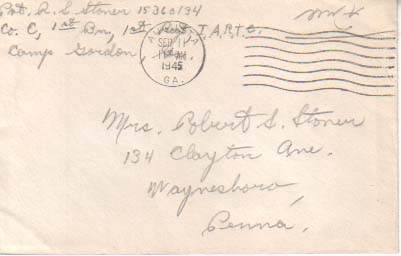 Pvt. R. S. Stoner 15360134
Co. C, 1st Bn, 1st I.A.R.T.C.
Camp Gordon,
SEP 11
1945
GA.
Mrs. Robert S. Stoner
134 Clayton Ave.
Waynesboro,
Penna,